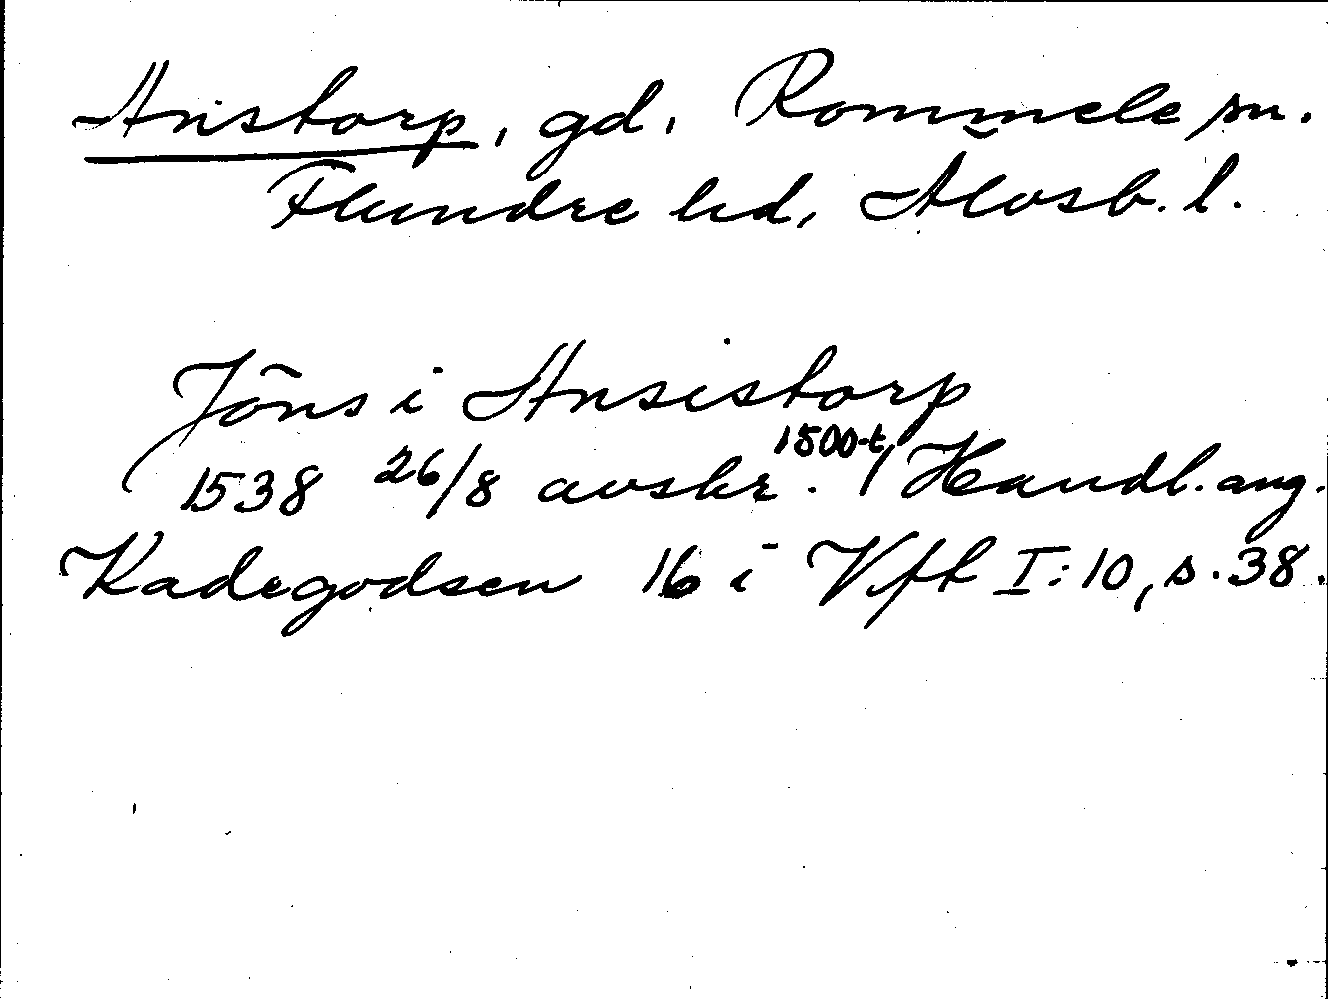 Anistorp, gd, Rommele sn.
Flundre hd, Älvsb. l.
Jöns i Ansistorp
1538 26/8 avskr. 1500-t, Handl. ang.
Kadegodsen 16 i Vfth I:10, s. 38.